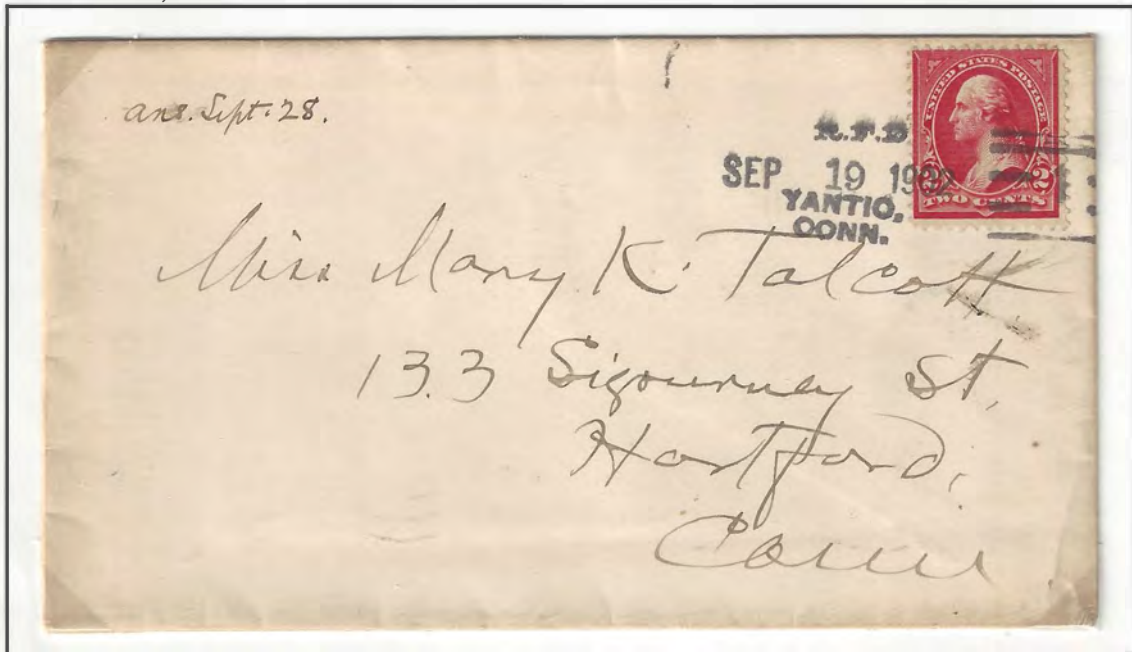 ans. Sept. 28.
UNITED STATES POSTAGE
2 2
TWO CENTS
R.F.D
SEP 19 1902
YANTIC,
CONN.
Miss Mary K. Talcott.
133 Sigourney St,
Hartford,
Conn